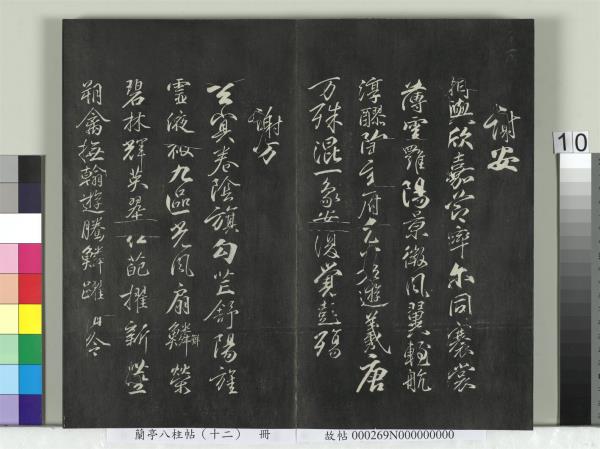 謝安
相與欣嘉節率爾同褰裳
薄雲羅陽景微風翼輕航
淳醪陶玄府兀兀遊羲唐
万殊混一象安復覺彭殤
謝万
玄冥卷陰旗勾芒舒陽旌
靈液被九區光風扇鱗鮮榮
碧林輝英翠紅葩擢新莖
翔禽撫翰遊騰鱗躍清泠
10
蘭亭八柱帖(十二) 冊
故帖 000269N000000000